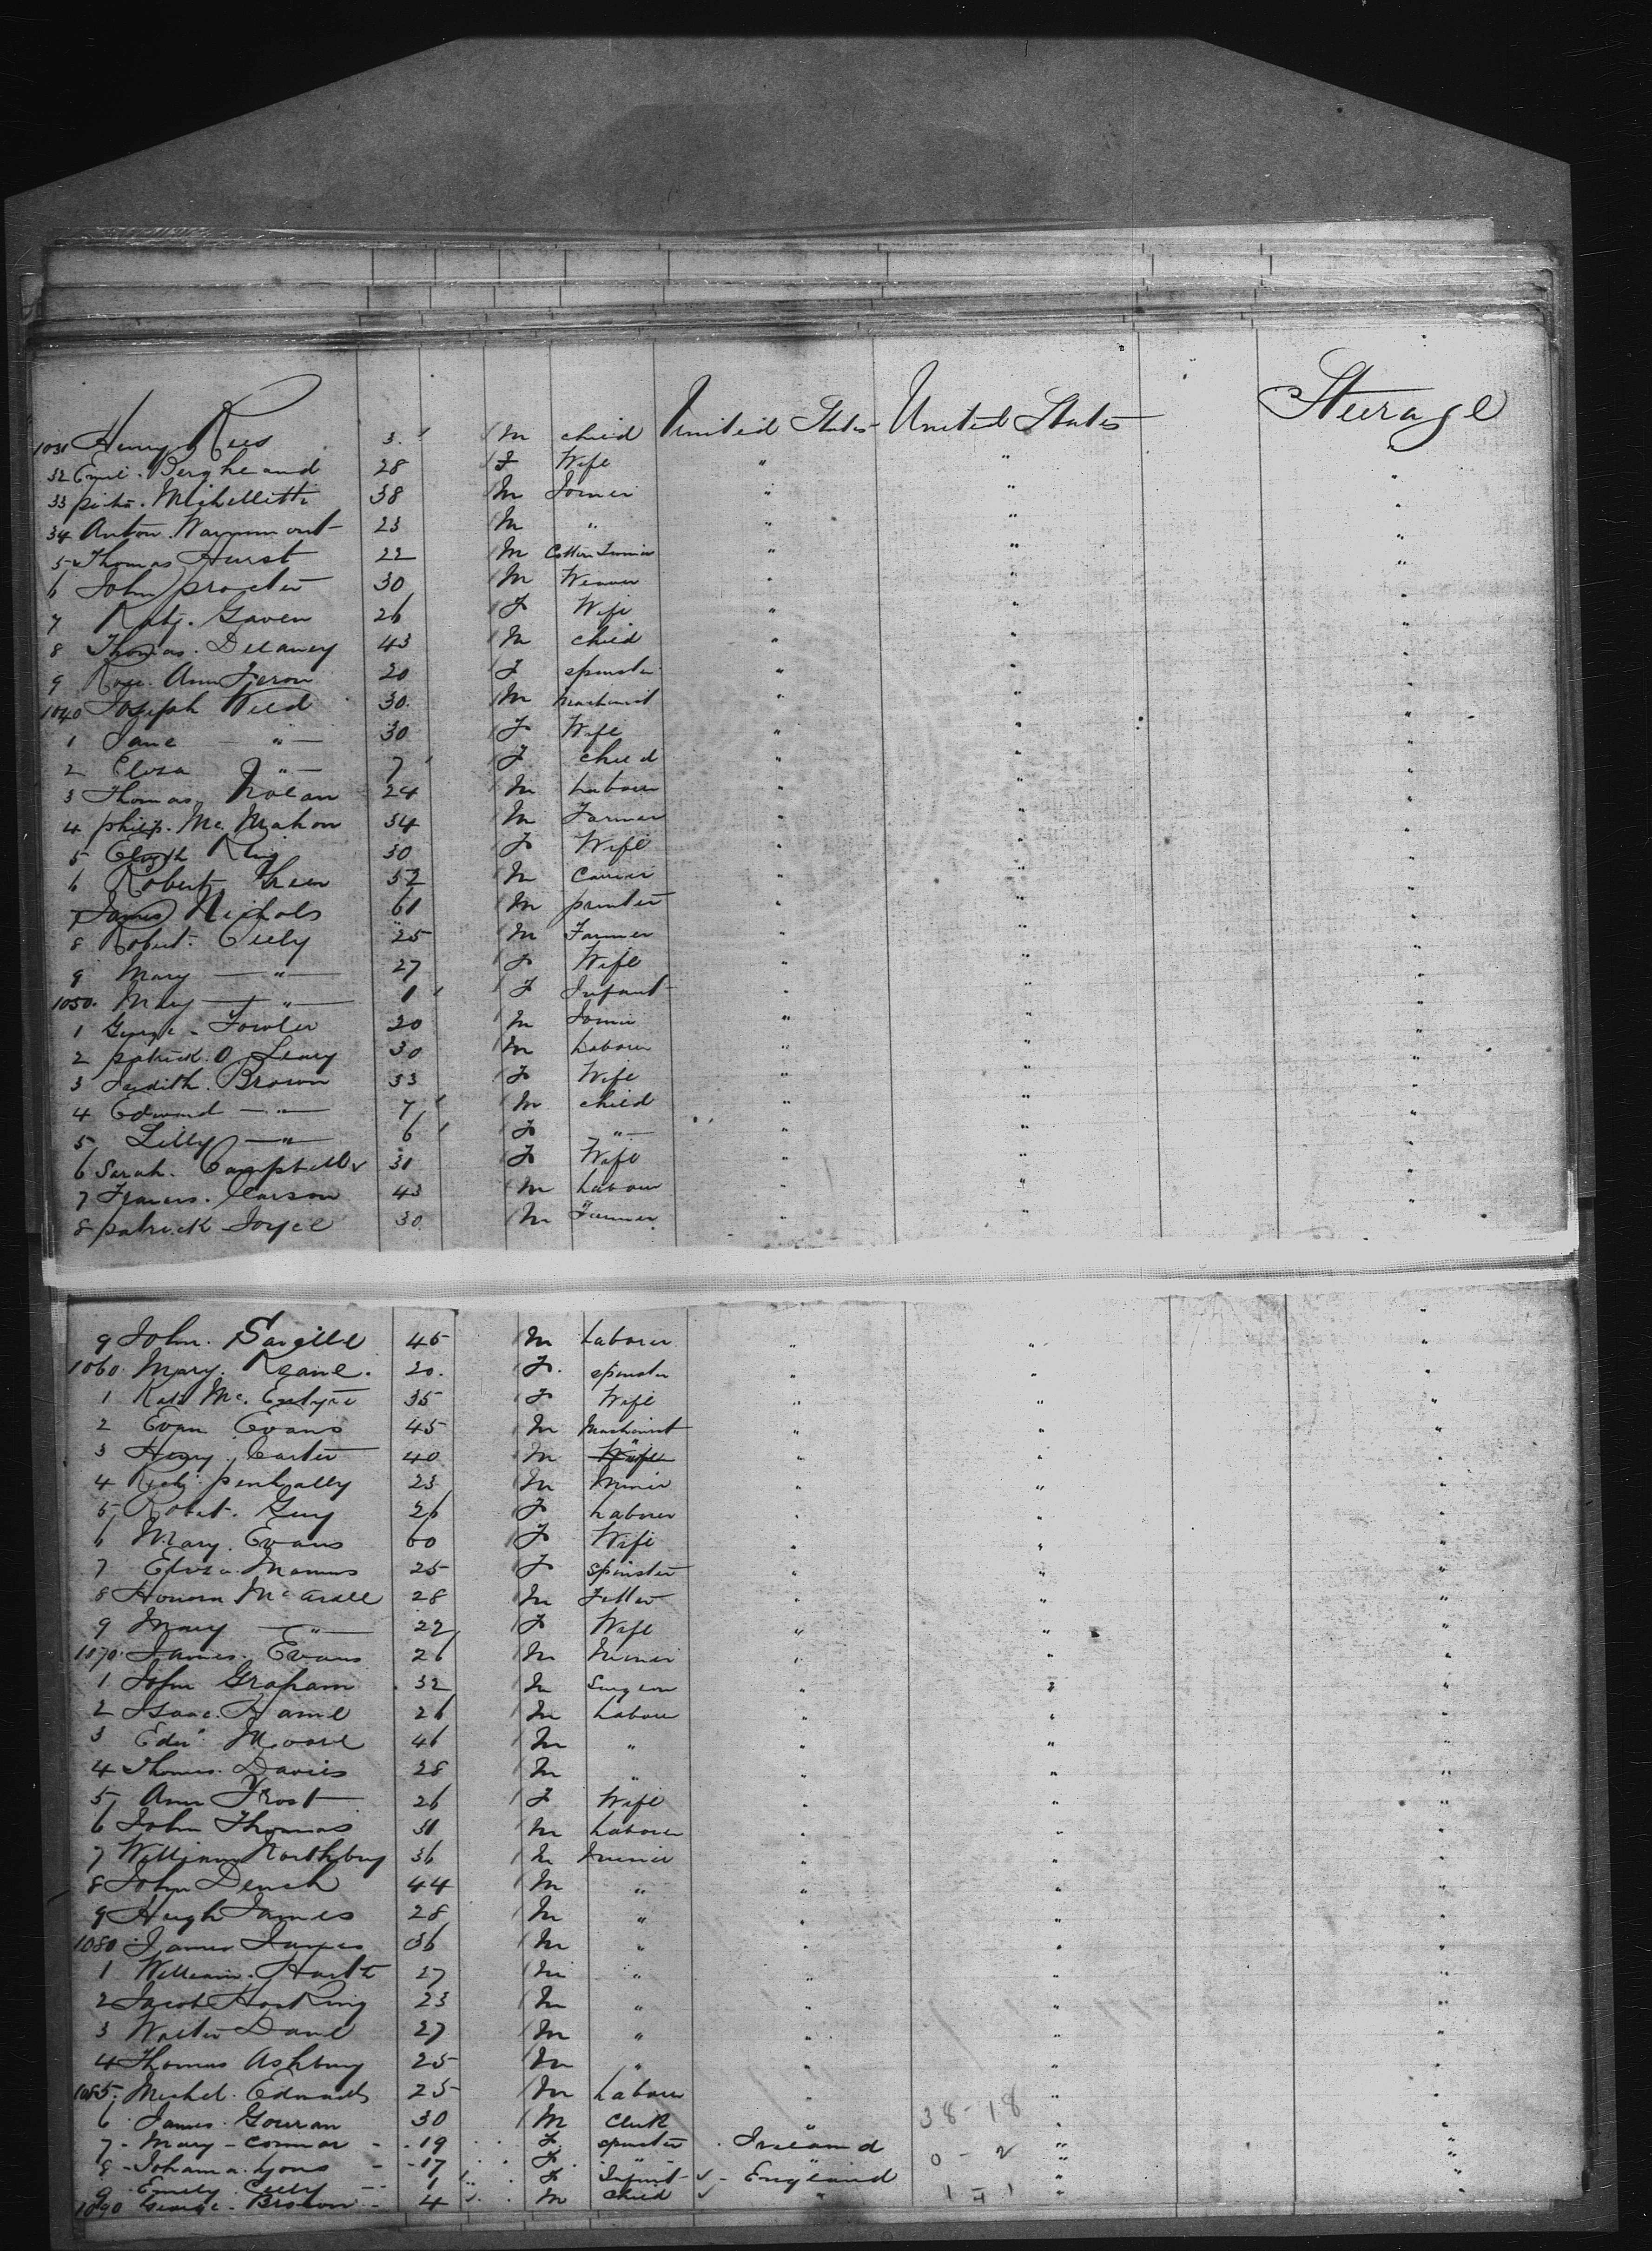 1031 Henry Rees 3 M child United States United States Steerage
32 Emil. Bergheand 28 F Wife " " "
33 Michelletti 38 M Joiner " " "
34 Anton 23 M " " " "
5 Thomas Hurst 22 M Cotton " " "
6 John procter 30 M Weaver " " "
7 Gaven 26 F Wife " " "
8 Thomas. Delaney 43 M child " " "
9 Rose. Ann Feron 20 F spinster " " "
1040 Joseph 30. M Machinist " " "
1 Jane — " — 30 F Wife " " "
2 Eliza " — 7 F child " " "
3 Thomas Nolan 24 M Labourer " " "
4 philip. Mc. Mahon 34 M Farmer " " "
5 King 30 F Wife " " "
6 Robert Green 52 M Carrier " " "
7 James Nichols 61 M printer " " "
8 Robert. Ceely 25 M Farmer " " "
9 Mary — " — 27 F Wife " " "
1050. May — " — 1 F Infant " " "
1 George - Fowler 20 M Joiner " " "
2 patrick. O Leary 30 M Labourer " " "
3 Judith. Brown 33 F Wife " " "
4 Edward — " — 7 M child " " "
5 Lilly — " — 6 F — " — " " "
6 Sarah. Campbell 31 F Wife " " "
7 Francis. Carson 43 M Labourer " " "
8 patrick Joyce 30 M Farmer " " "
9 John. Saville 45 M Labourer " " "
1060. Mary. Keane. 20. F. spinster " " "
1 Kate Mc. Entyre 35 F Wife " " "
2 Evan Evans 45 M Machinist " " "
3 Carter 40 M Wife " " "
4 Richd. penhally 23 M Miner " " "
5 Robert. Guy 26 F Labourer " " "
6 Mary. Evans 60 F Wife " " "
7 Eliza 25 F Spinster " " "
8 Honora McArdle 28 M Fitter " " "
9 Mary — " — 22 F Wife " " "
1070. James. Evans 26 M Miner " " "
1 John Graham 32 M Surgeon " " "
2 Isaac. 26 M Labourer " " "
3 Edwd. Moore 46 M " " " "
4 Thomas. Davies 28 M " " " "
5 Ann Frost 26 F Wife " " "
6 John Thomas 31 M Labourer " " "
7 William Northbuy 36 M Miner " " "
8 John Dench 44 M " " " "
9 Hugh James 28 M " " " "
1080 James James 36 M " " " "
1 William. 27 M " " " "
2 Jacob Hosking 23 M " " " "
3 Walter 27 M " " " "
4 Thomas Ashbury 25 M " " " "
1085. Michel. Edwards 25 M Labourer " " "
6 James. Gowran 30 M Clerk " 38-18 " "
7 - Mary - Connor - 19 F spinster Ireland " "
8 - Johanna. Lyons - 17 F. " " 0 - 2 " "
9 Emily. Ceely 1 F Infant England " "
1090 George - Brown - 4 M Child " 1 - 1 " "